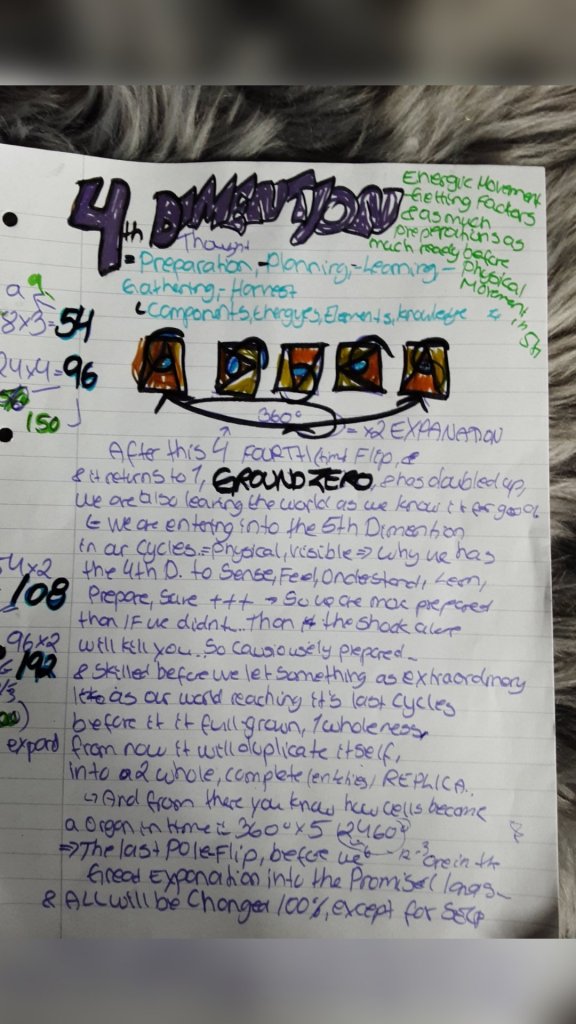 4th DIMENTION
Thought
= Preparation, - Planning, - Learning -
Gathering, - Harvest
↳ Components, Energyes, Elements, knowledge &
Energic Movement
Getting Factors
& as much
preperations as
much ready before
physical
Movement
in 5th
a 9
8x3=54
24x4=96
150
360°
= x2 EXPANATION
After this 4 FOURTH Flip, &
& it returns to 1, GROUND ZERO, & has doubled up,
we are also learing the world as we know it for good &
↳ we are entering into the 5th Dimention
in our cycles. = Physical, visible => why we has
the 4th D. to Sense, Feel, Understand, Learn,
Prepare, Sure +++ → So we are more prepared
than IF we didnt.. Than the shock alone
will kill you.. So causiously prepared..
& skilled before we let something as extraordinary
as our world reaching it's last cycles
before it full-grown, 1 wholeness,
from now it will duplicate itself,
into a 2 whole, complete (entities) REPLICA..
↳ And from there you know how cells become
a Organ in time is 360° x 5
=> The last Pole Flip, before we are in the
Great Expanation into the Promised lands..
& ALL will be Changed 100%, except for SELF
54x2
108
96x2
192
expand